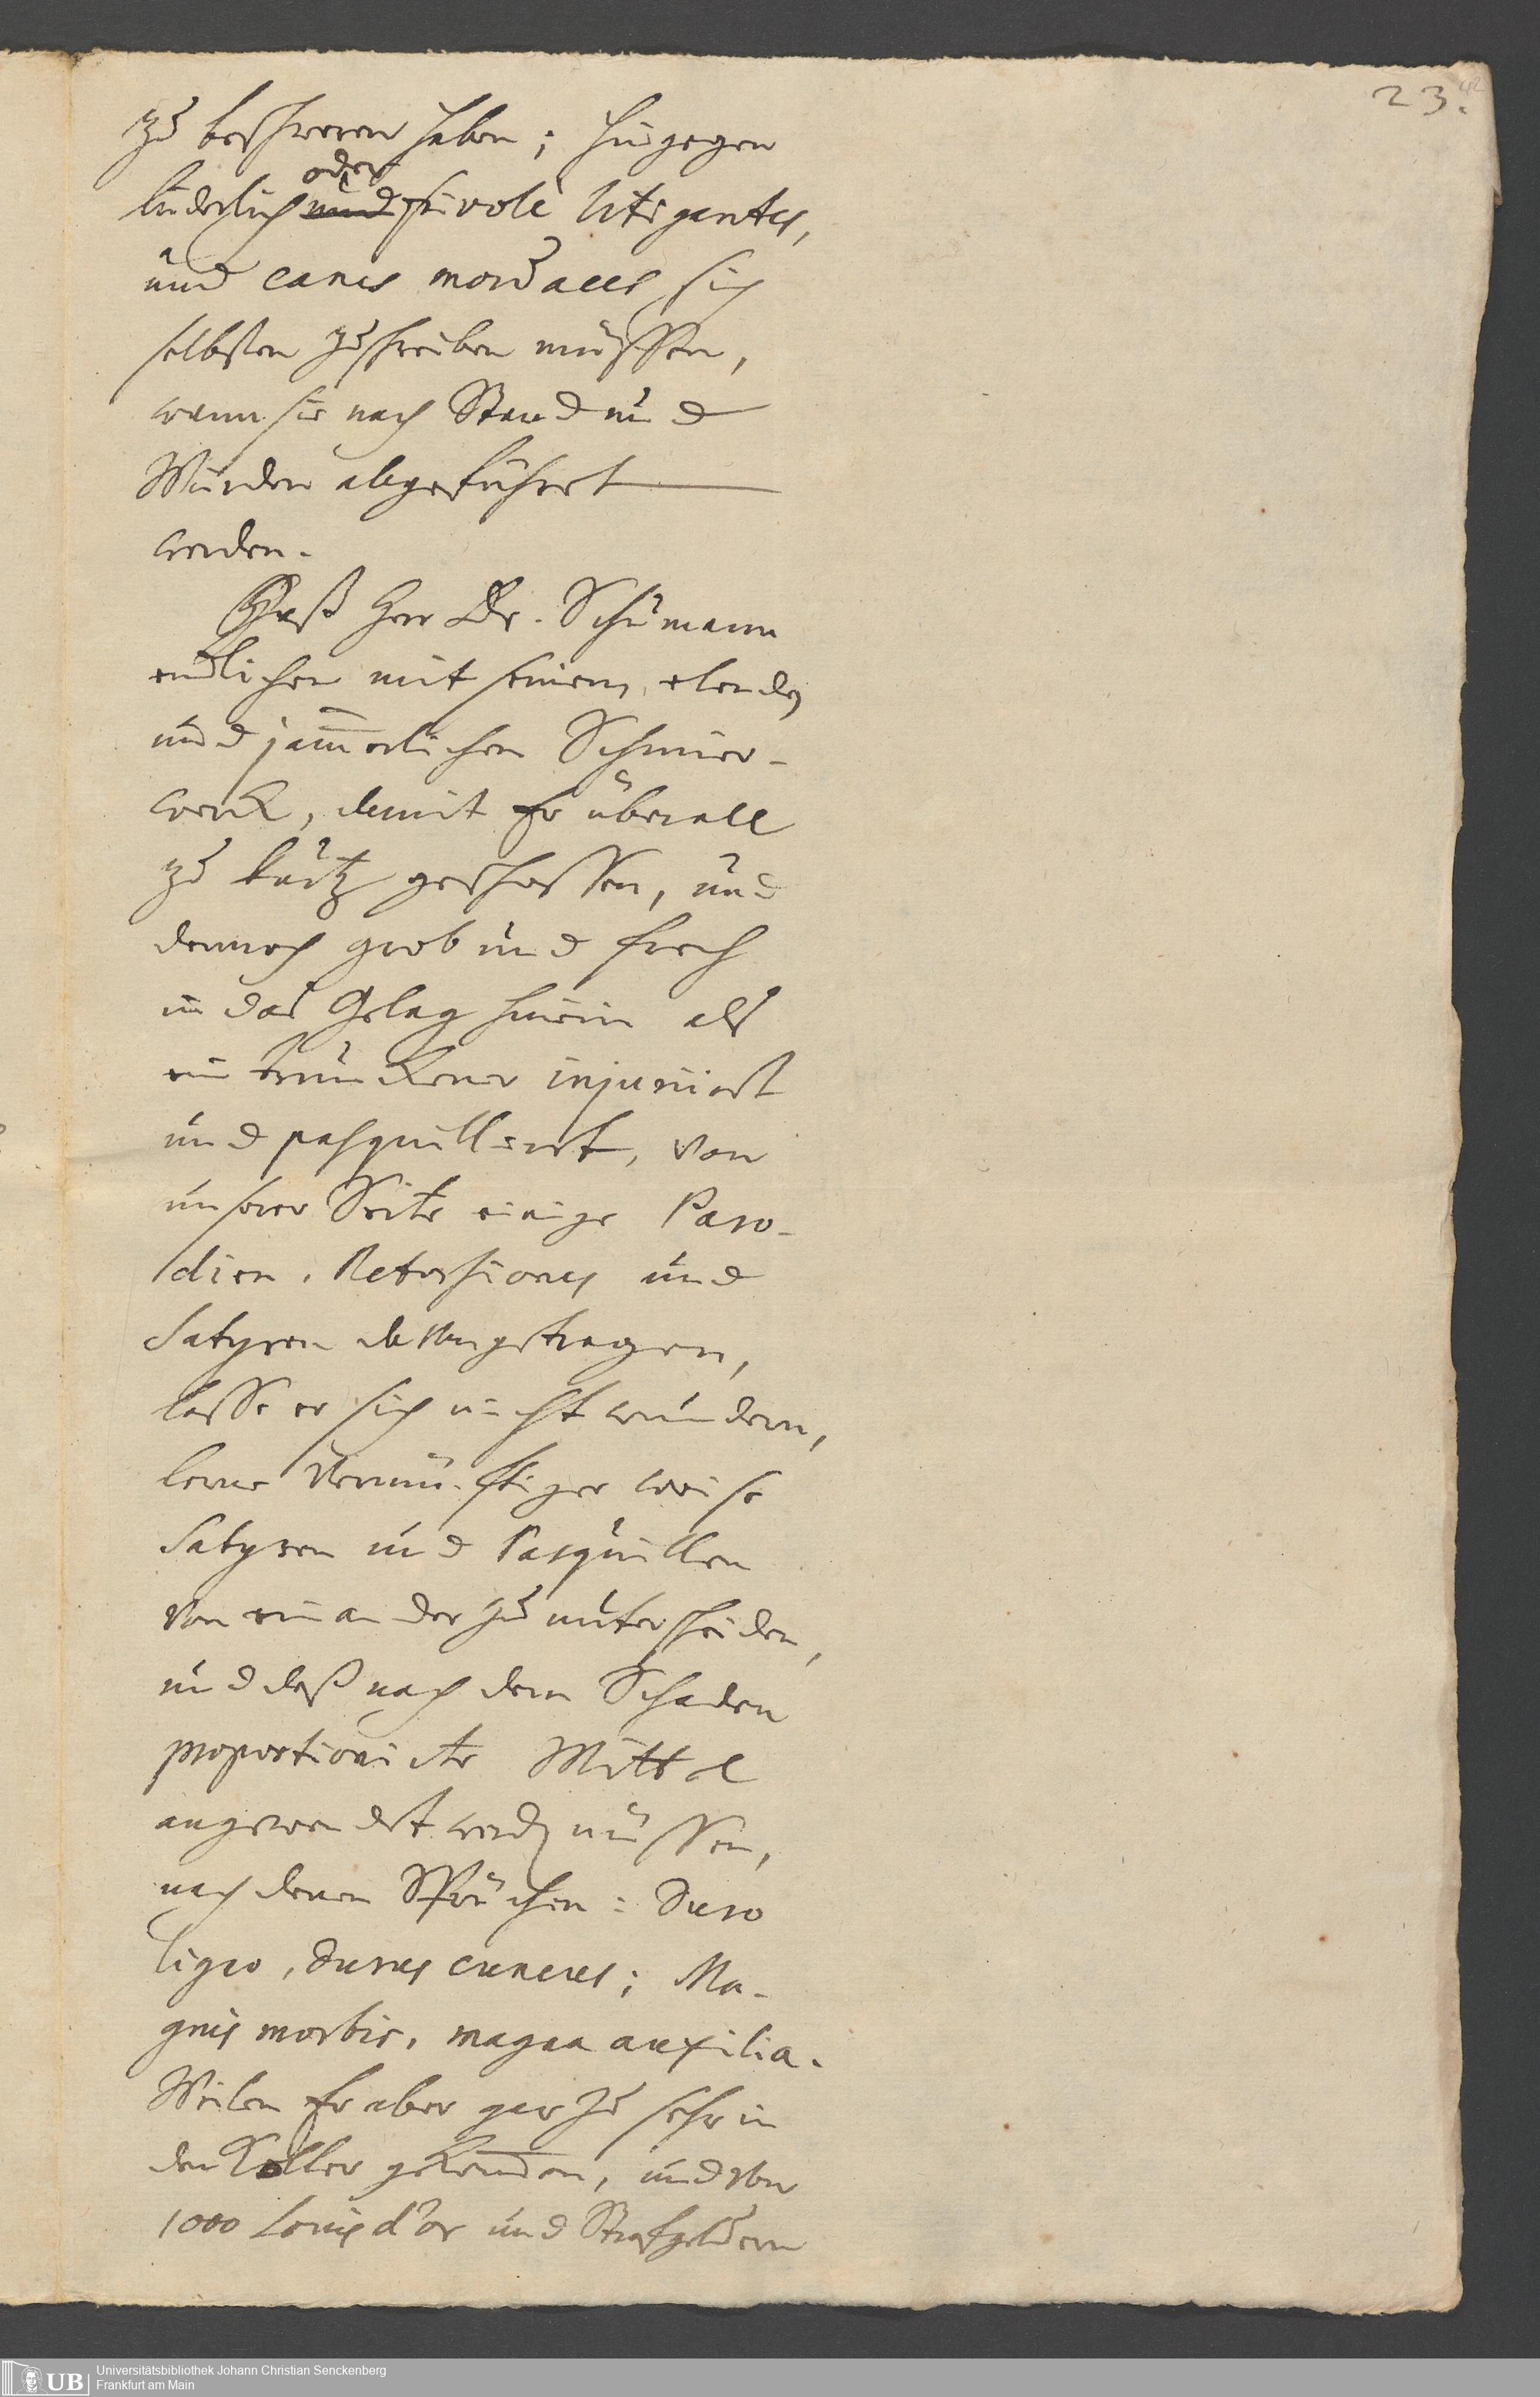 23.
zu beschweren haben; hingegen
liederlich oder und frivole litigantes,
und canes mordaces sich
selbsten zuschreiben müssen,
wann sie nach Stand und
Würden abgeführet
werden.
Daß Herr Dr. Schümann
endlichen mit seinem elenden
und jam̅erlichen Schmier-
werck, damit Er überall
zu kurtz geschossen, und
dennoch grob und frech
in das Gelag hinein als
ein trunckener injuriirt
und pasquillirt, von
unserer Seite einige Paro-
dien, Retorsiones und
Satyren davon getragen,
lasse er sich nicht wundern,
lerne vernünftiger weise
Satyren und Pasquillen
von einander zu unterscheiden,
und daß nach dem Schaden
proportionirte Mittel
angewendet werden müssen,
nach denen Sprüchen: Duro
ligno, durus cuneus; Ma-
gnis morbis, magna auxilia.
Weilen Er aber gar zu sehr in
den Koller gekom̅en, und von
1000 Louis d'or und Strafgeldern
Universitätsbibliothek Johann Christian Senckenberg
Frankfurt am Main
UB